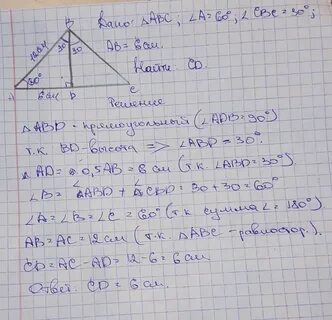 B
Дано: △ABC; ∠A=60°, ∠CBD=30°;
12см
30 30
AB=6см.
Найти CD.
A 30° 6см D C
Решение
△ABD - прямоугольный (∠ADB=90°)
т.к. BD-высота => ∠ABD=30°.
AD=0,5AB=6см (т.к. ∠ABD=30°)
∠B=∠ABD+∠CDD=30+30=60°
∠A=∠B=∠C=60° (т.к. сумма ∠=180°)
AB=AC=2см (т.к. △ABC-равностор.).
CD=AC-AD=12-6=6см
Ответ: CD=6см.